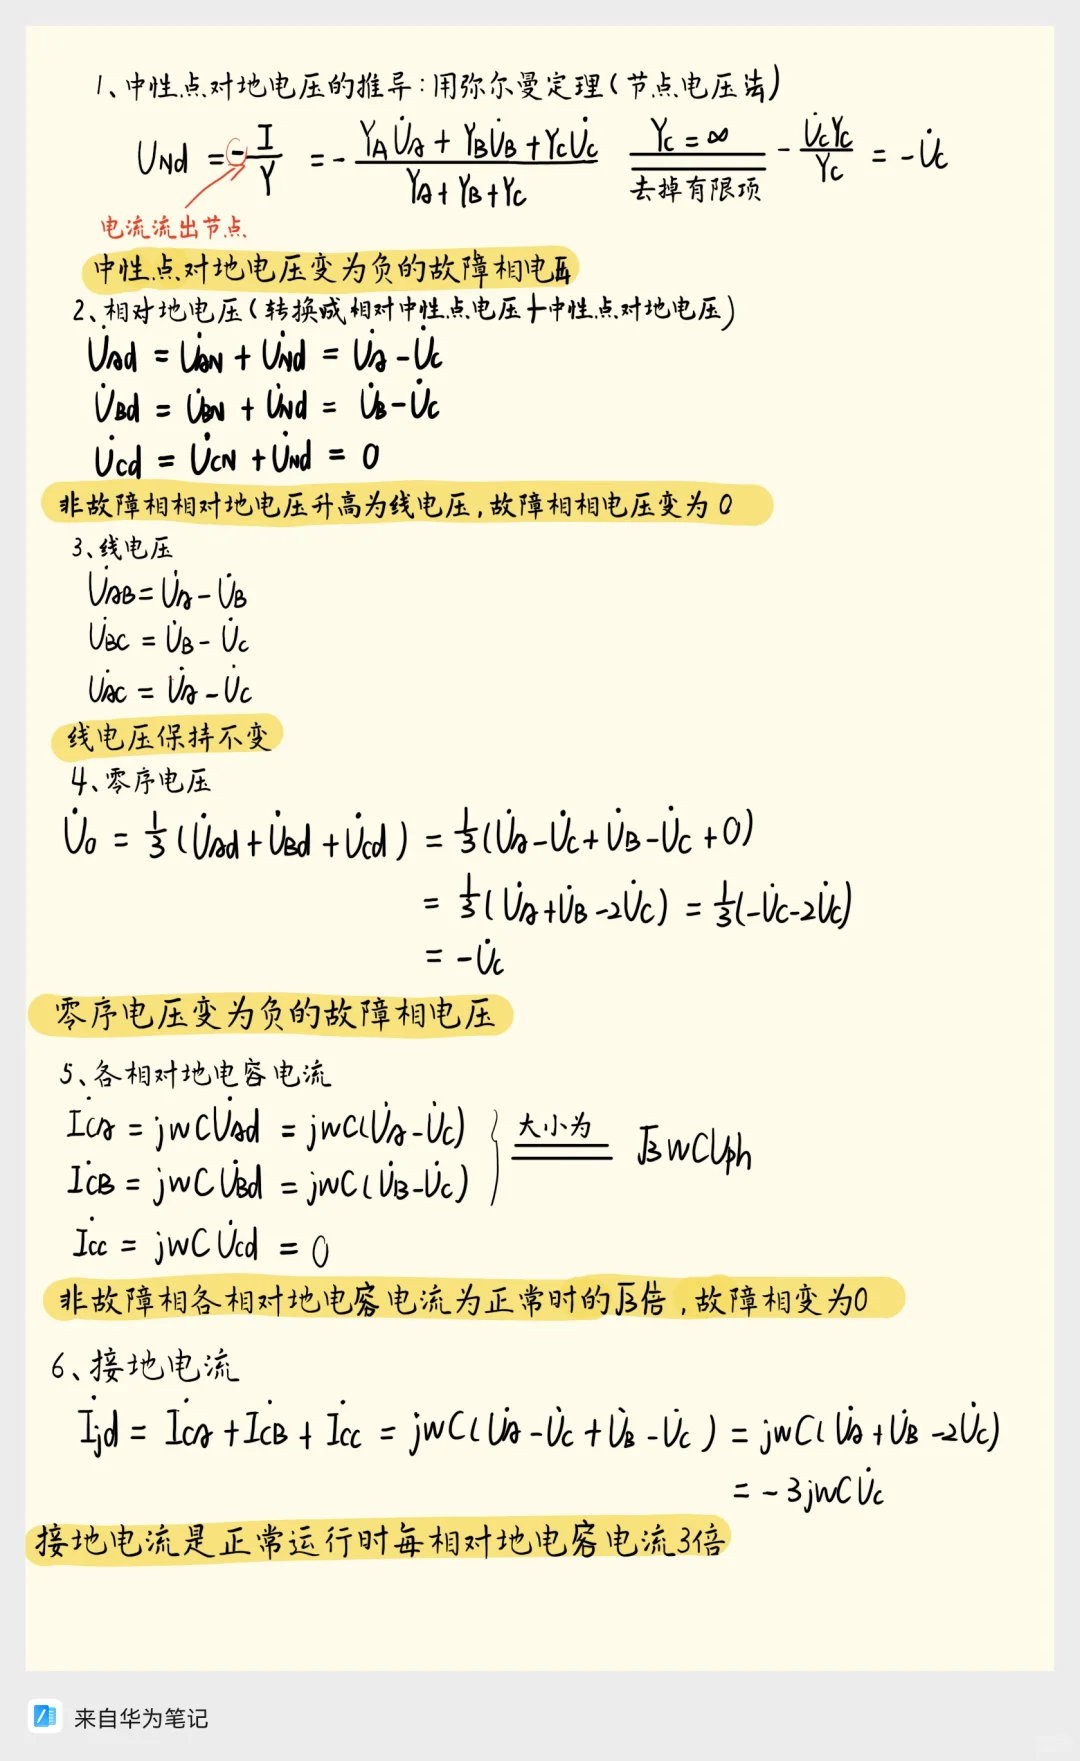 1、中性点对地电压的推导:用弥尔曼定理(节点电压法)
U_Nd = -I/Y = -(Y_A U̇_A + Y_B U̇_B + Y_C U̇_C)/(Y_A + Y_B + Y_C) Y_C = ∞ 去掉有限项 -U̇_C Y_C/Y_C = -U̇_C
电流流出节点
中性点对地电压变为负的故障相电压
2、相对地电压(转换成相对中性点电压+中性点对地电压)
U̇_Ad = U̇_AN + U̇_Nd = U̇_A - U̇_C
U̇_Bd = U̇_BN + U̇_Nd = U̇_B - U̇_C
U̇_Cd = U̇_CN + U̇_Nd = 0
非故障相相对地电压升高为线电压,故障相相电压变为0
3、线电压
U̇_AB = U̇_A - U̇_B
U̇_BC = U̇_B - U̇_C
U̇_AC = U̇_A - U̇_C
线电压保持不变
4、零序电压
U̇_0 = 1/3(U̇_Ad + U̇_Bd + U̇_Cd) = 1/3(U̇_A - U̇_C + U̇_B - U̇_C + 0)
= 1/3(U̇_A + U̇_B - 2U̇_C) = 1/3(-U̇_C - 2U̇_C)
= -U̇_C
零序电压变为负的故障相电压
5、各相对地电容电流
İ_CA = jwCU̇_Ad = jwC(U̇_A - U̇_C)
İ_CB = jwCU̇_Bd = jwC(U̇_B - U̇_C) } 大小为 √3wCUph
İ_CC = jwCU̇_Cd = 0
非故障相各相对地电容电流为正常时的√3倍,故障相变为0
6、接地电流
İ_jd = İ_CA + İ_CB + İ_CC = jwC(U̇_A - U̇_C + U̇_B - U̇_C) = jwC(U̇_A + U̇_B - 2U̇_C)
= -3jwCU̇_C
接地电流是正常运行时每相对地电容电流3倍
来自华为笔记